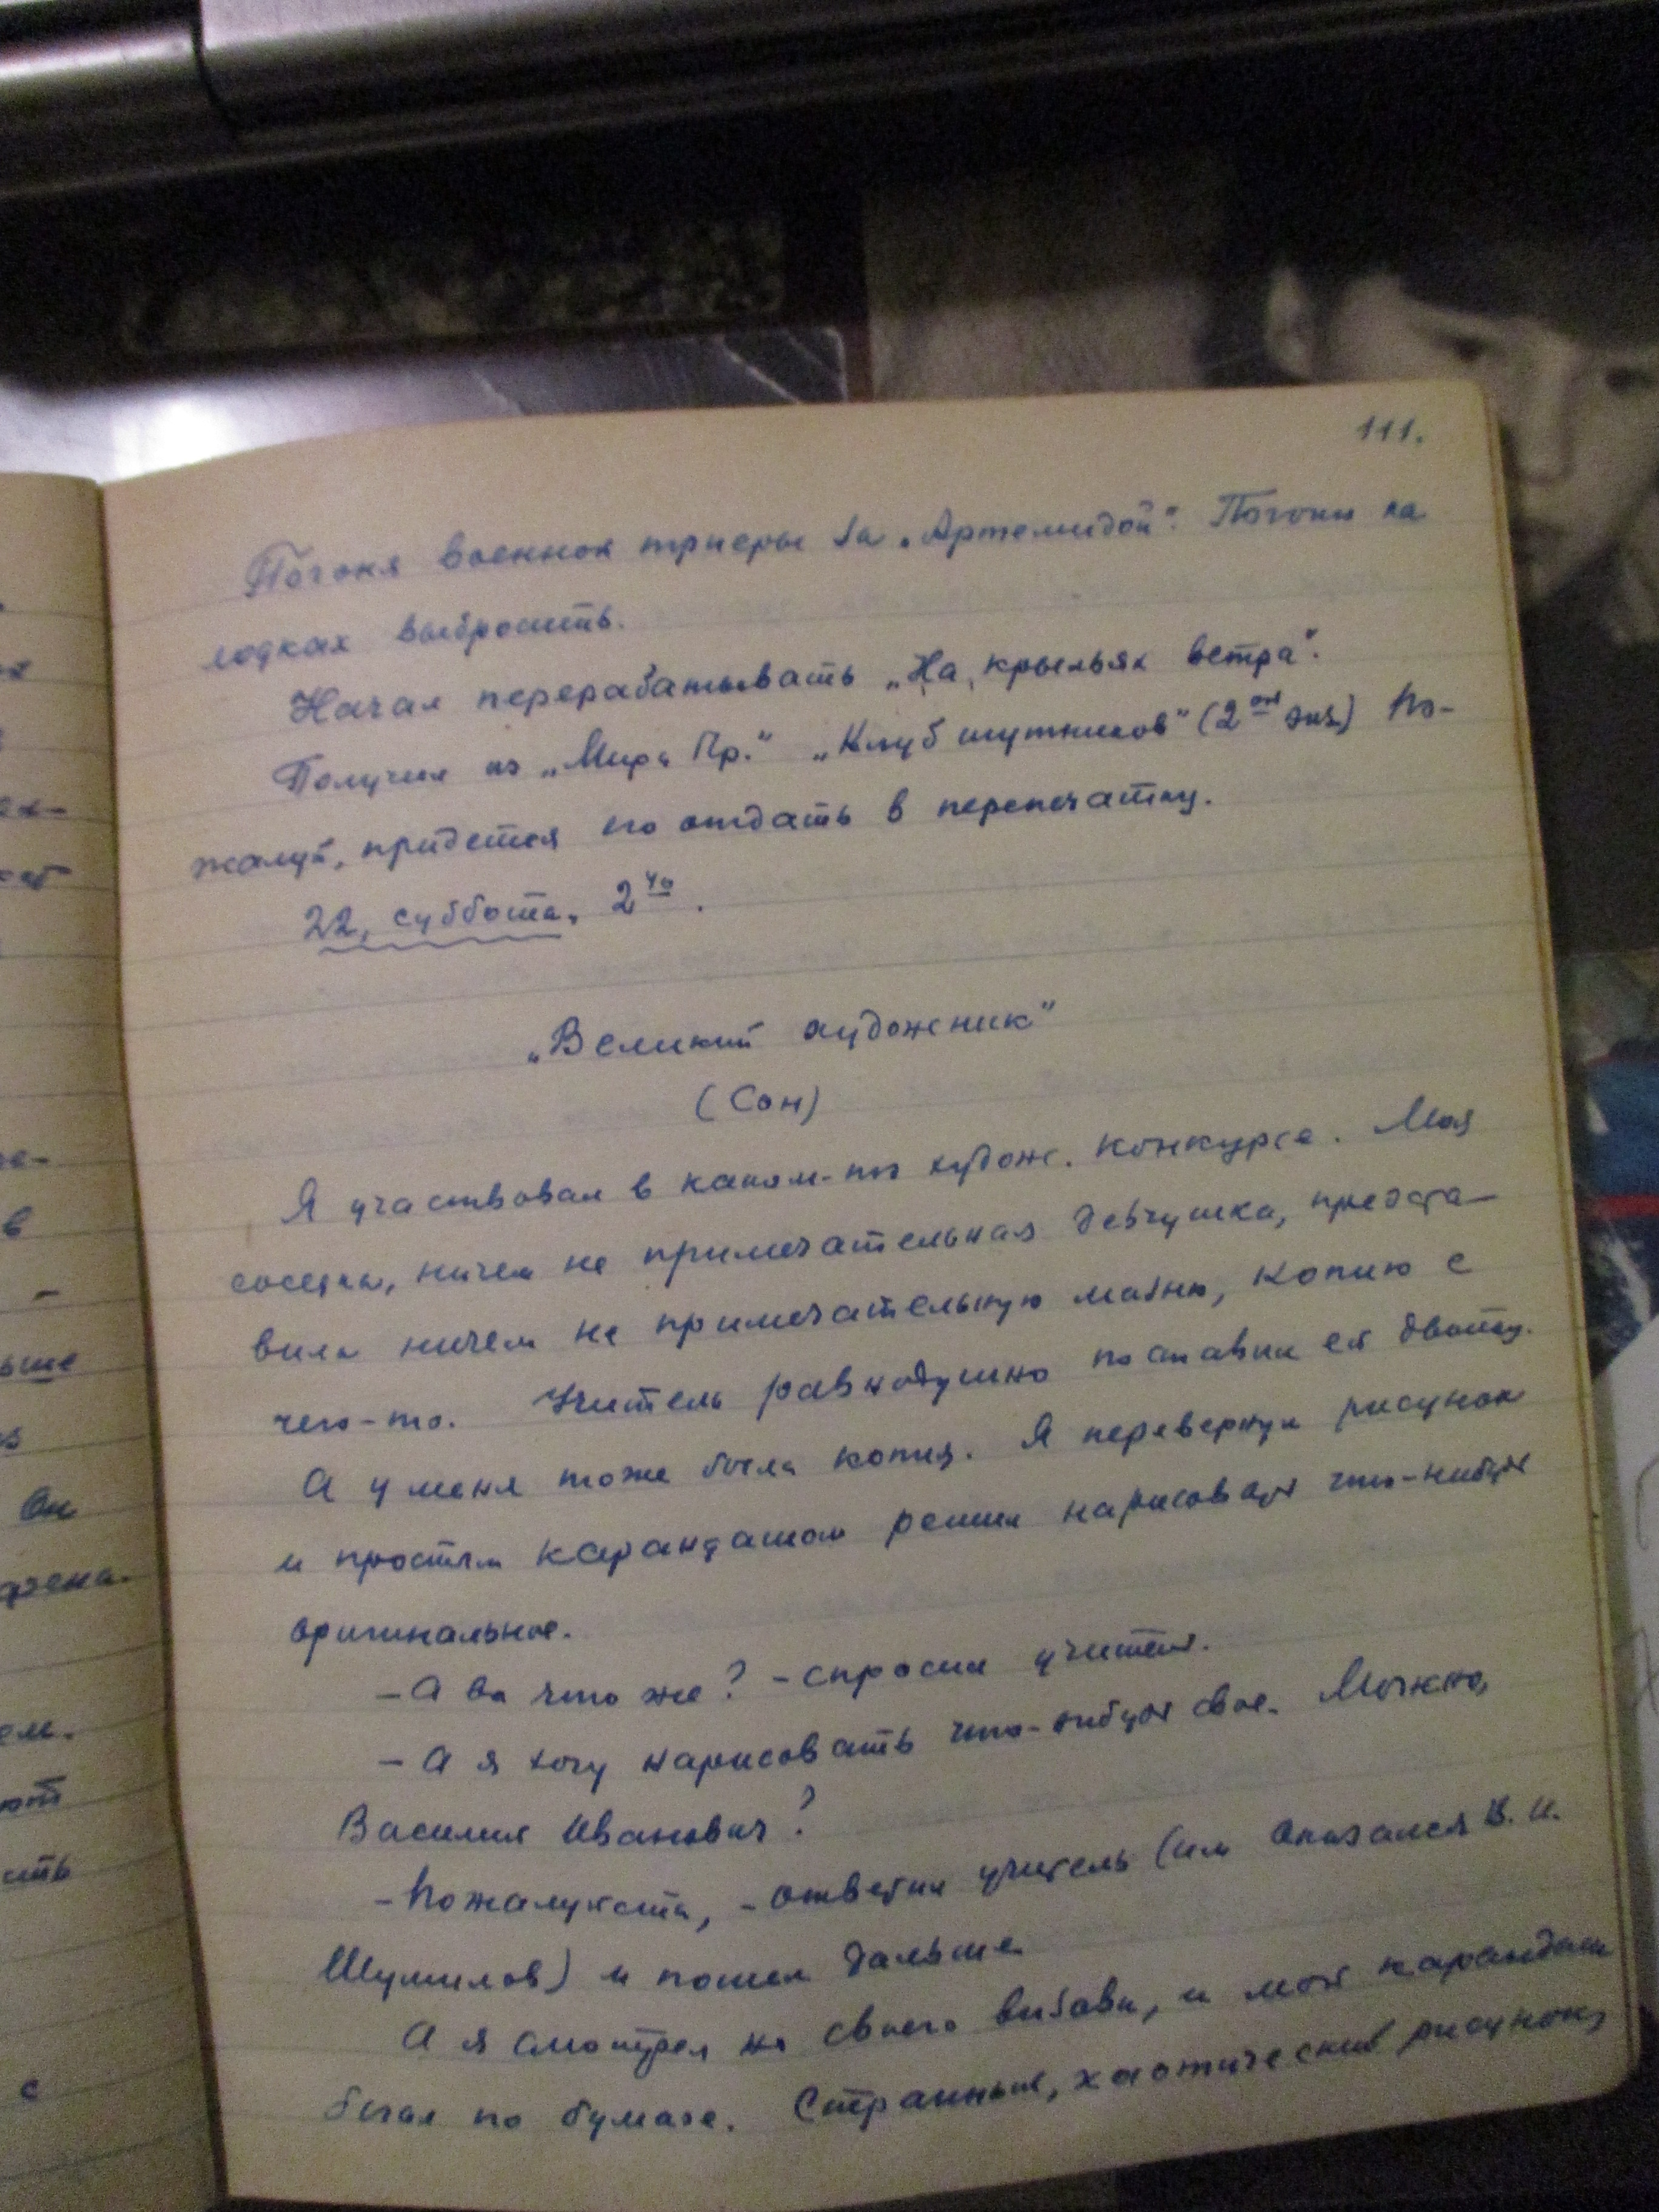 111.
Погоня военной триеры за „Артемидой“. Погони на
лодках выбросить.
Начал перерабатывать „На крыльях ветра“.
Получил из „Мира Пр.“ „Клуб шутников“ (2ой экз.) По-
жалуй, придется его отдать в перепечатку.
22, суббота. 2 ча.
„Великий художник“
(Сон)
Я участвовал в каком-то худож. конкурсе. Моя
соседка, ничем не примечательная девчушка, предста-
вила ничем не примечательную мазню, копию с
чего-то. Учитель равнодушно поставил ей двойку.
А у меня тоже была копия. Я перевернул рисунок
и простым карандашом решил нарисовать что-нибудь
оригинальное.
– А вы что же? – спросил учитель.
– А я хочу нарисовать что-нибудь свое. Можно,
Василий Иванович?
– Пожалуйста, – ответил учитель (им оказался В. И.
Шумилов) и пошел дальше
А я смотрел на своего визави, и мой карандаш
бегал по бумаге. Странный, хаотический рисунок,
ьше
Он
ем.
ют
сть
с
в